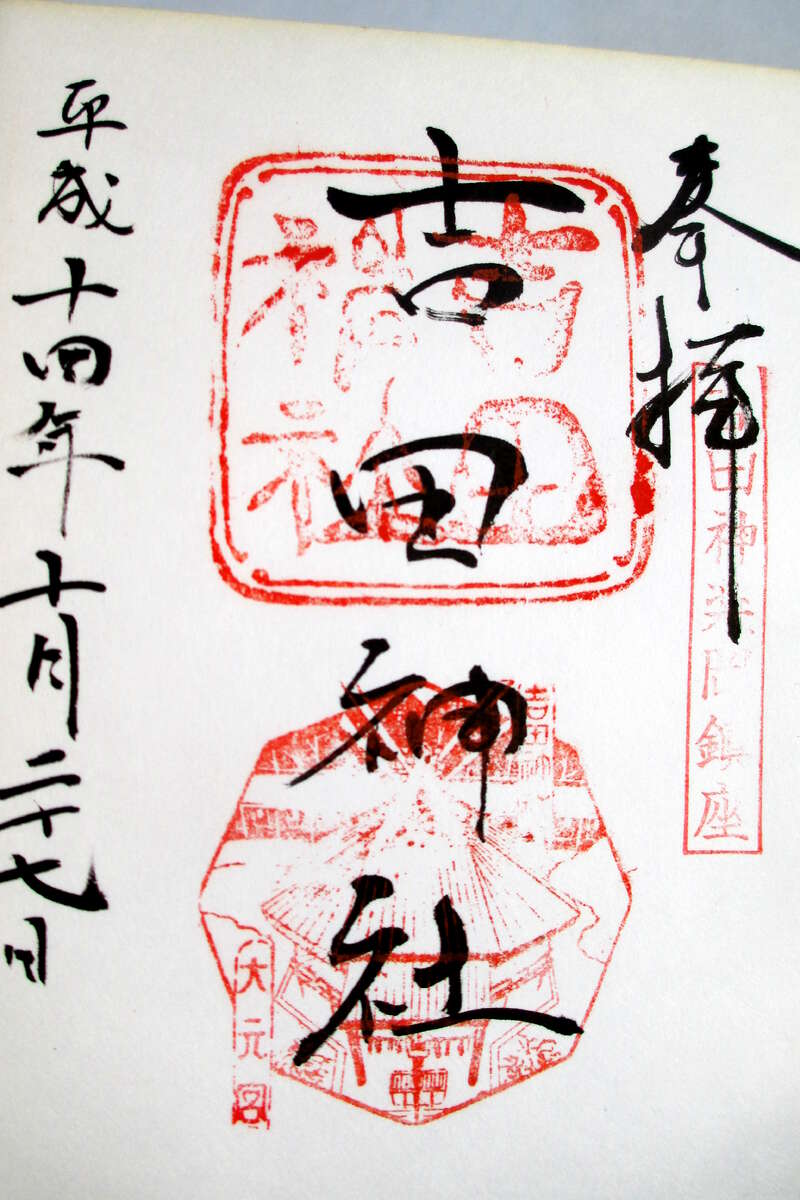 奉拝
田神楽岡鎮座
吉田神社
吉田神社
吉田神
大元宮
平成十四年十月二十七日